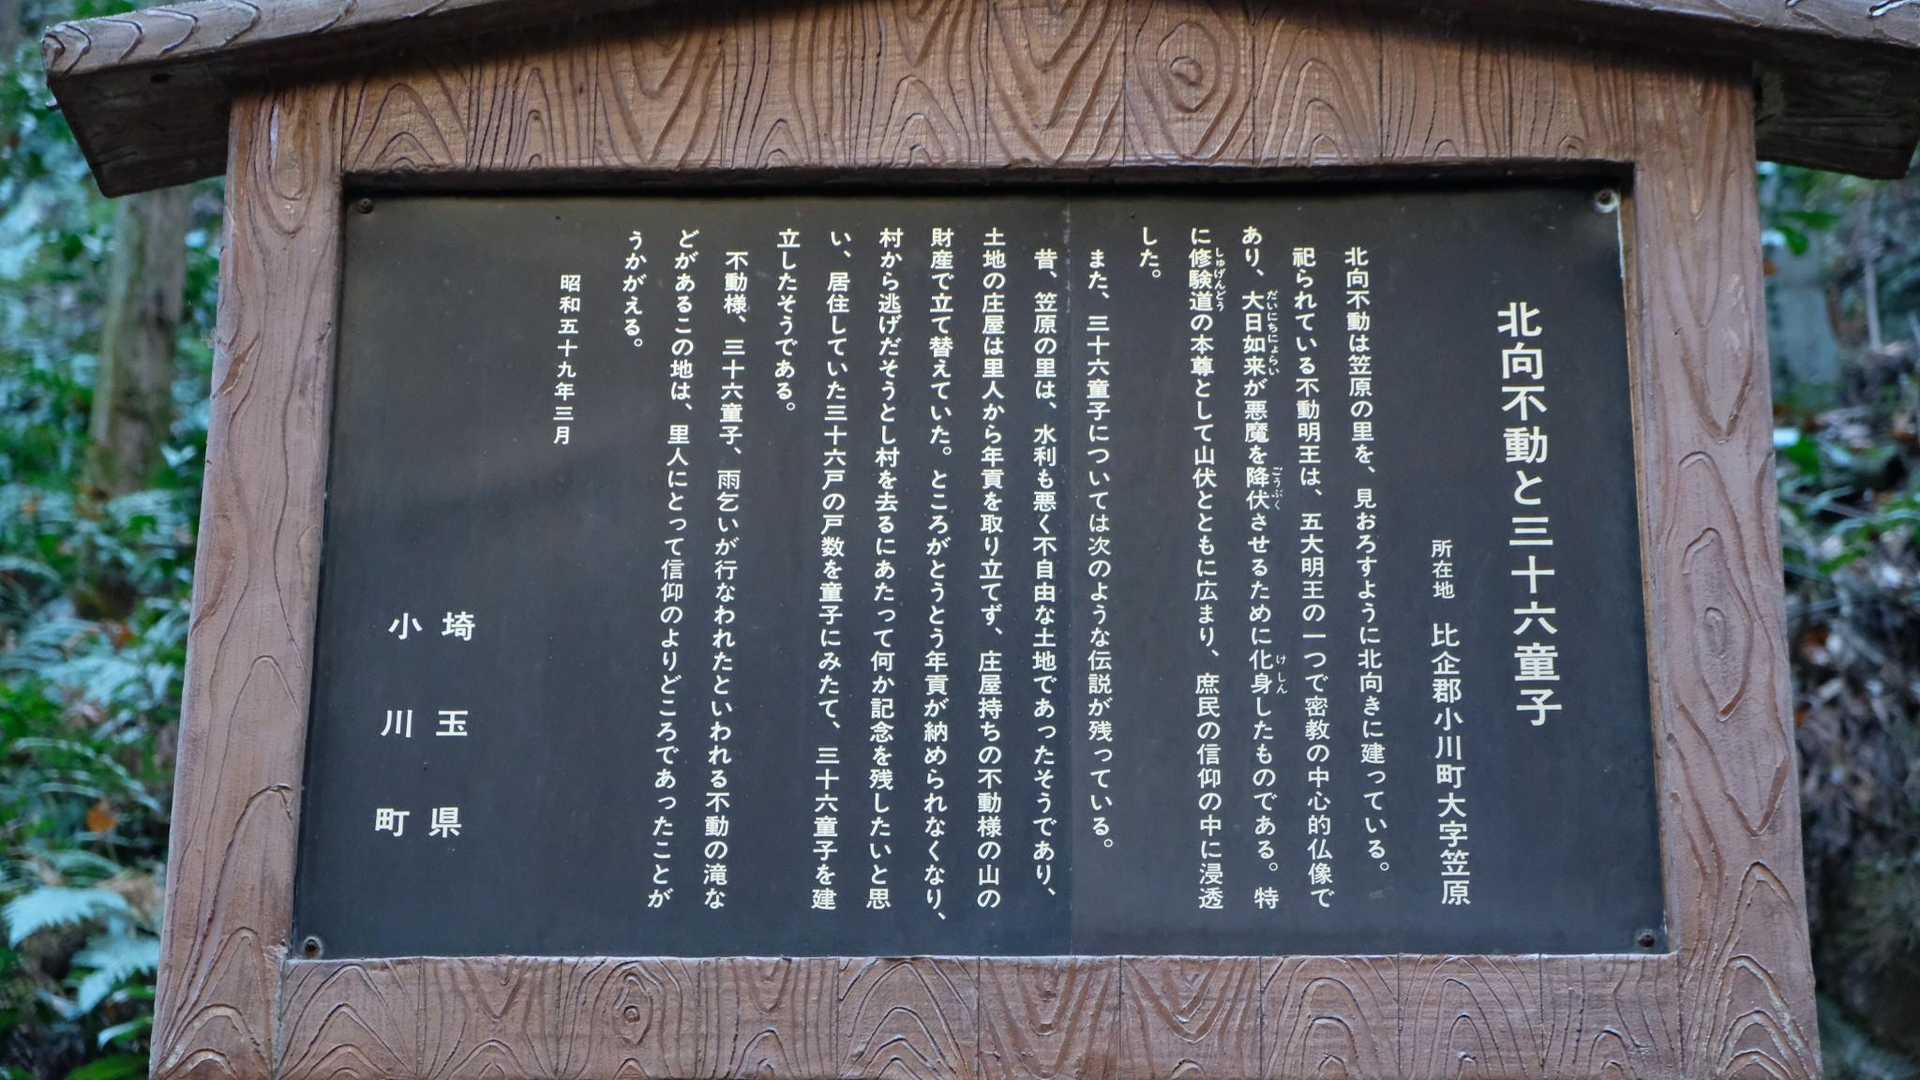 北向不動と三十六童子
所在地　比企郡小川町大字笠原
北向不動は笠原の里を、見おろすように北向きに建っている。
祀られている不動明王は、五大明王の一つで密教の中心的仏像で
あり、大日如来が悪魔を降伏させるために化身したものである。特
だいにちにょらい　ごうぶく　けしん
に修験道の本尊として山伏とともに広まり、庶民の信仰の中に浸透
しゅげんどう
した。
また、三十六童子については次のような伝説が残っている。
昔、笠原の里は、水利も悪く不自由な土地であったそうであり、
土地の庄屋は里人から年貢を取り立てず、庄屋持ちの不動様の山の
財産で立て替えていた。ところがとうとう年貢が納められなくなり、
村から逃げだそうとし村を去るにあたって何か記念を残したいと思
い、居住していた三十六戸の戸数を童子にみたて、三十六童子を建
立したそうである。
不動様、三十六童子、雨乞いが行なわれたといわれる不動の滝な
どがあるこの地は、里人にとって信仰のよりどころであったことが
うかがえる。
昭和五十九年三月
埼玉県
小川町